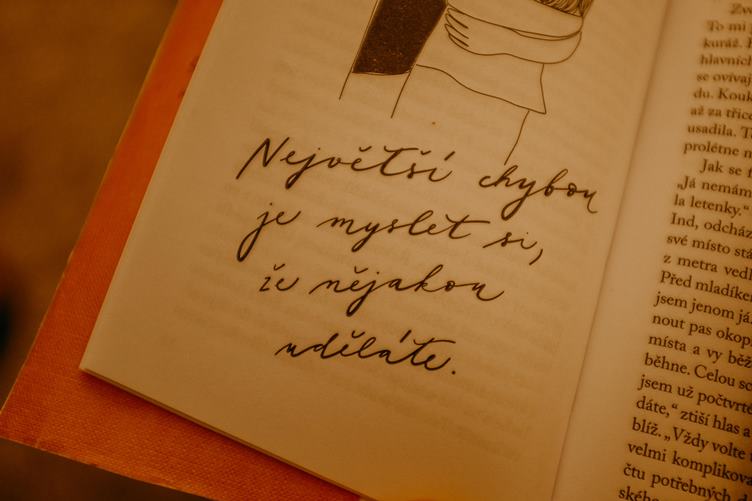 Největší chybou
je myslet si,
že nějakou
uděláte.
To mi
kuráž.
hlavních
se ovívaj
du. Kouk
až za třic
usadila.
prolétne
Jak se
„Já nemám
la letenky.“
Ind, odcház
své místo stá
z metra vedl
Před mladíke
jsem jenom já
nout pas okop
místa a vy běž
běhne. Celou
jsem už počtvrté
dáte,“ ztiší hlas a
blíž. „Vždy volte
velmi komplikova
čtu potřebných